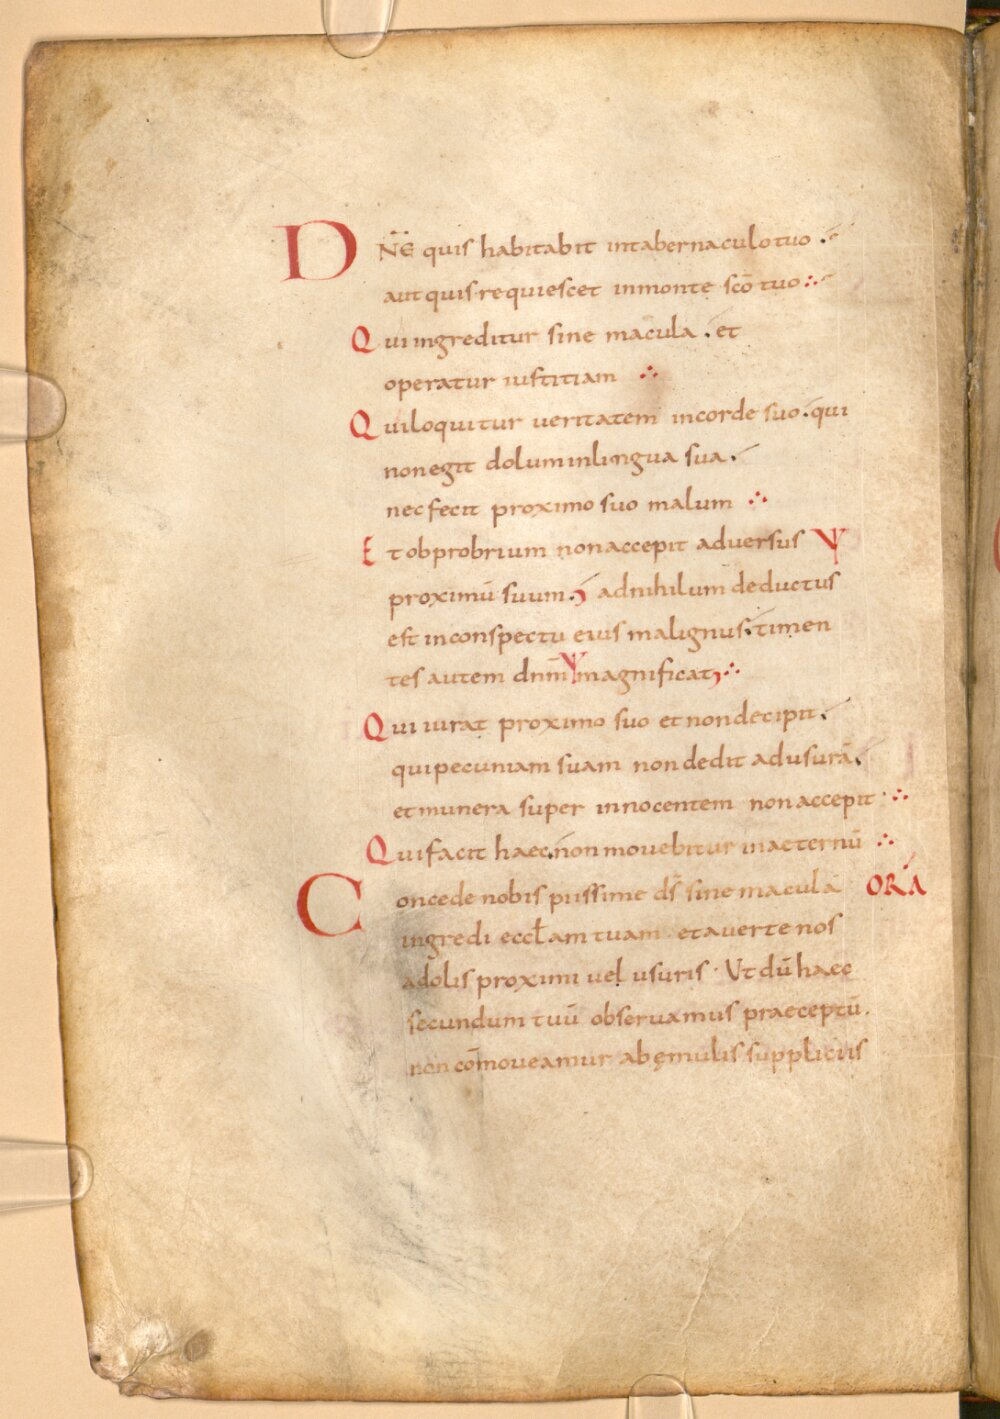 DNE quis habitabit intabernaculo tuo
aut quis requiescet inmonte scō tuo
Qui ingreditur sine macula. et
operatur iustitiam
Qui loquitur veritatem incorde suo. qui
non egit dolum inlingua sua.
nec fecit proximo suo malum
Et obprobrium non accepit adversus
proximū suum; adnihilum deductus
est inconspectu eius malignus. timen
tes autem dnm magnificat;
Qui iurat proximo suo et non decipit.
qui pecuniam suam non dedit adusurā.
et munera super innocentem non accepit
Qui facit haec. non movebitur inaeternū
Concede nobis piissime ds̄ sine macula ORA
ingredi eccłam tuam. et averte nos
adolis proximi vel usuris. Ut dū haec
secundum tuū observamus praeceptū.
non cōmoveamur ab ęmulis suppliciis